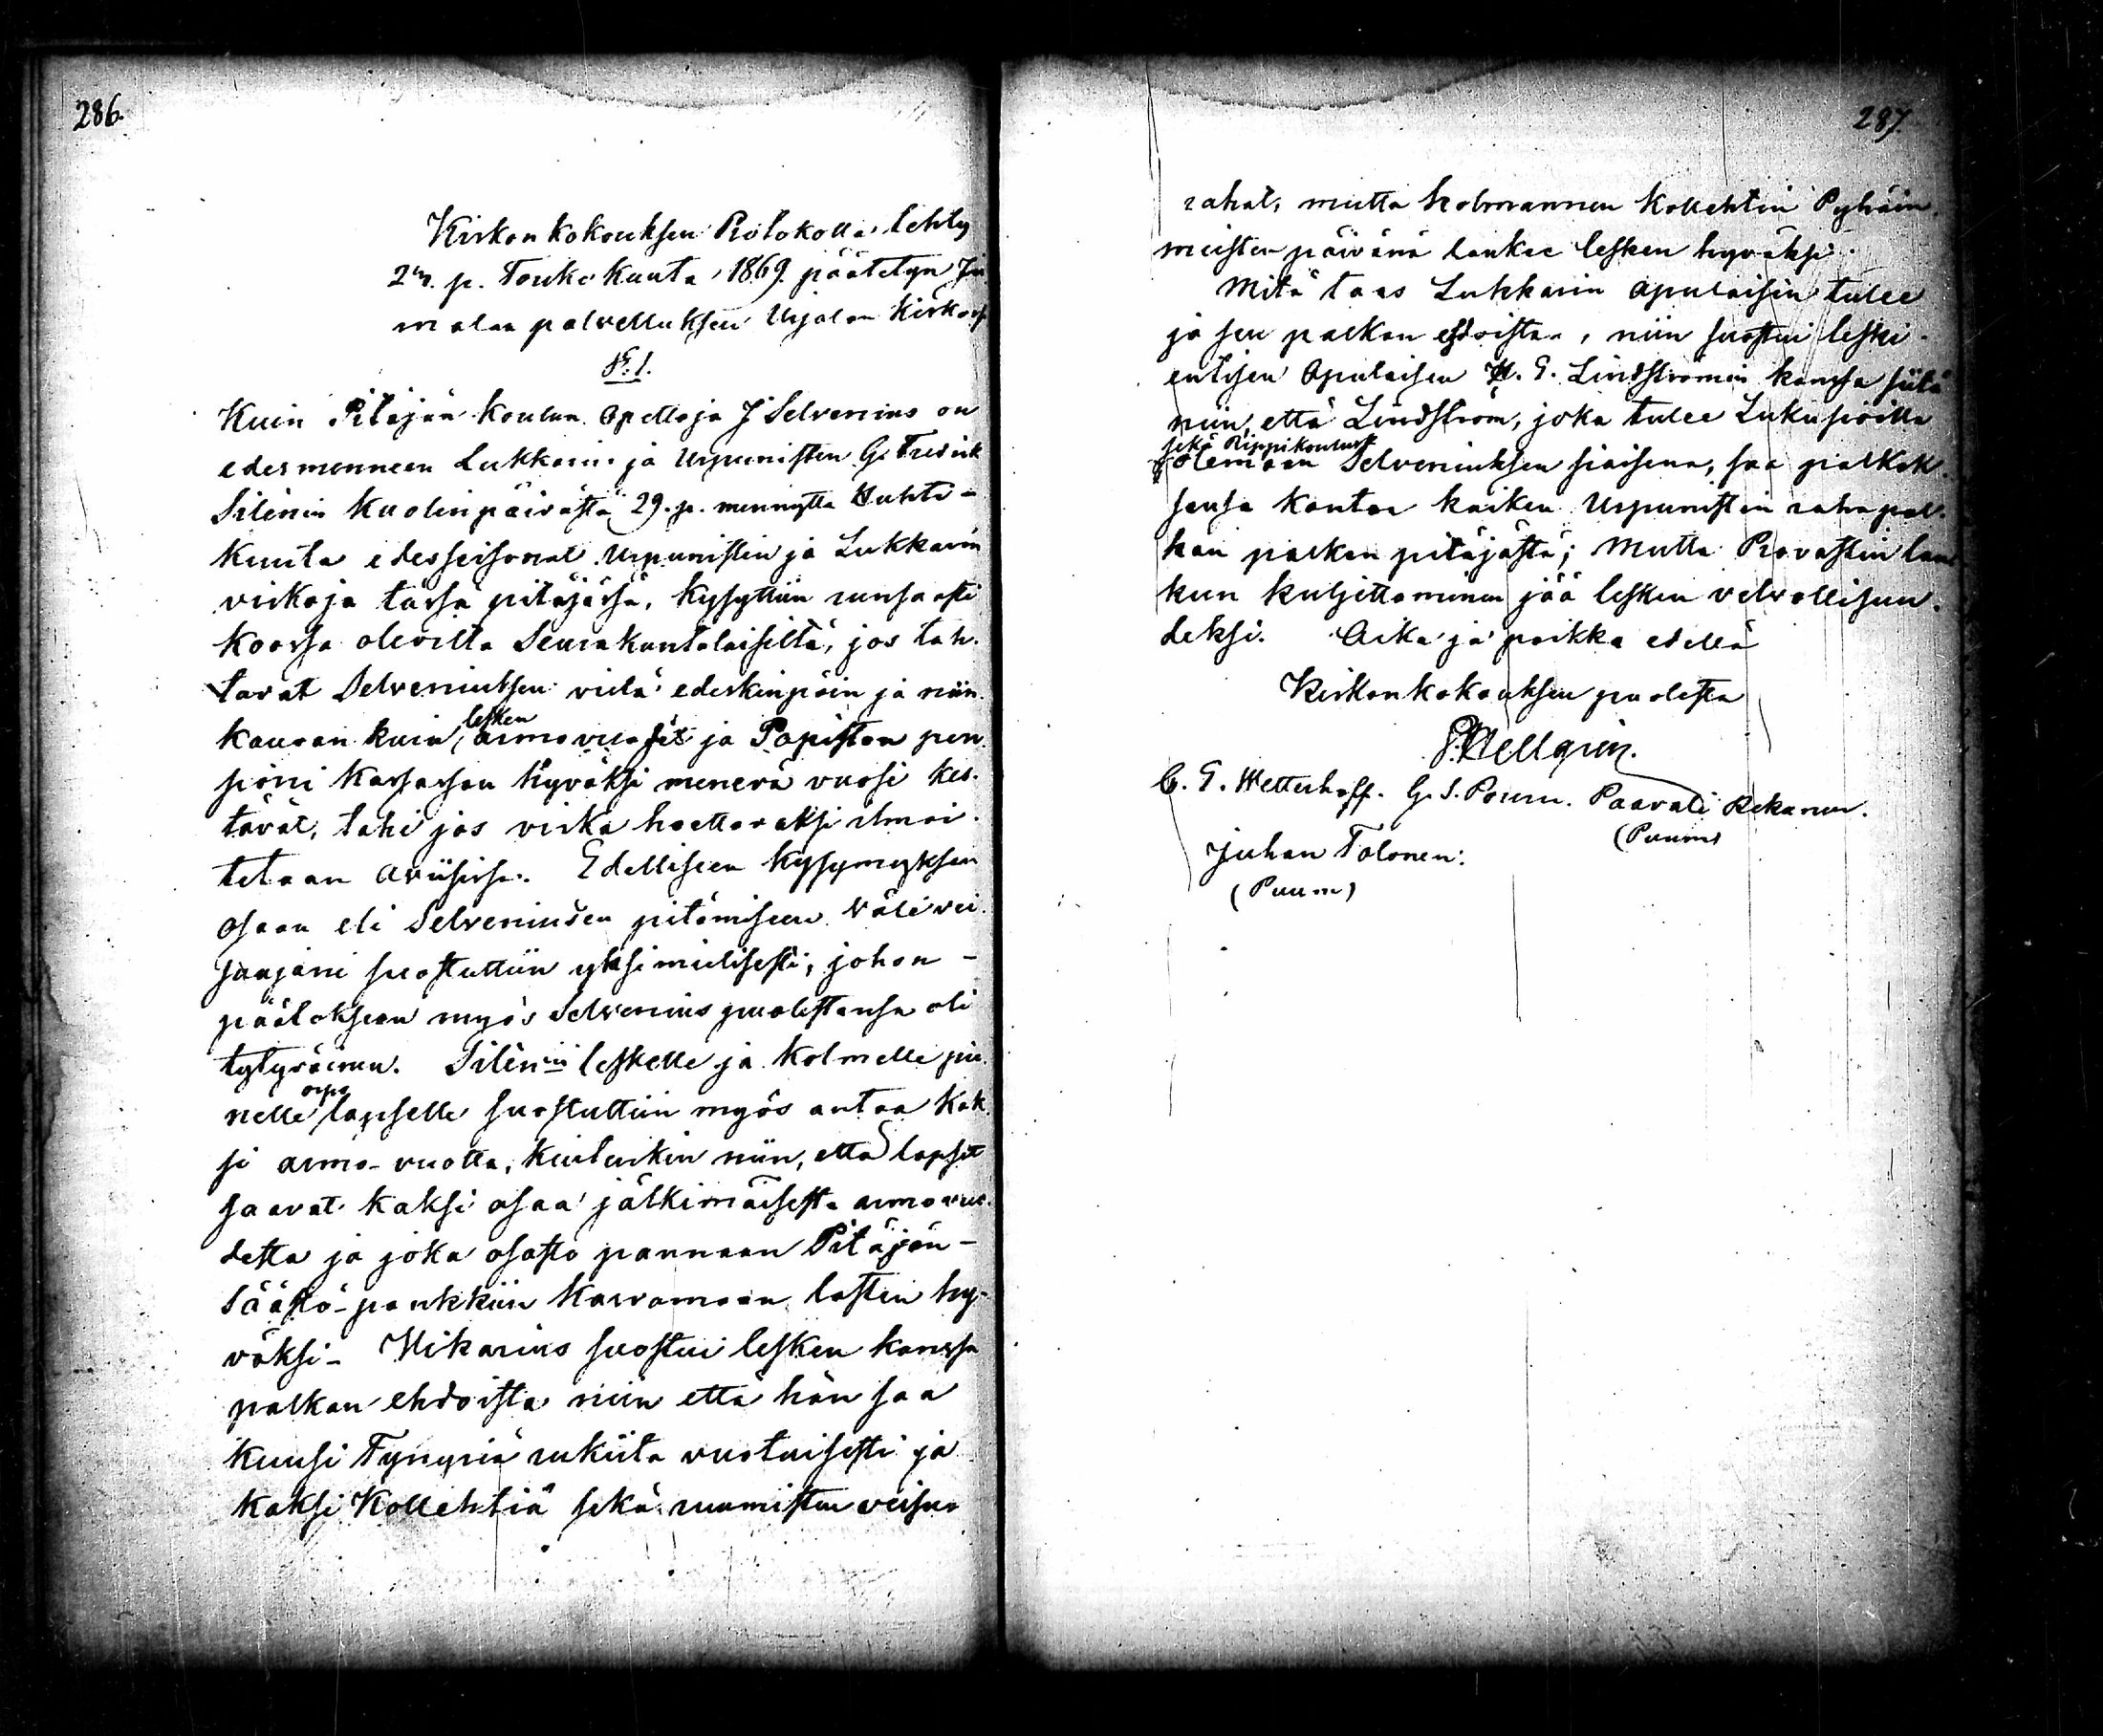 286.
Kirkon kokouksen Protokolla, tehty
2 p. Touko kuuta 1869. päätetyn Ju
malan palvelluksen Urjalan Kirkos
§. 1.
Kuin Pitäjän koulun Opettaja J Selvenius on
edesmenneen Lukkarin ja Urpunisten G. Fredrik
Silénin Kuolinpäivästä 29. p. mennyttä Huhti-
Kuuta edesseisonut Urpunistin ja Lukkarin
virkoja tässä pitäjässä, Kysyttiin runsaasti
koossa olevilta Seurakuntalaisilta, jos tah-
tovat Selveniuksen vielä edeskinpäin ja niin
kauvan kuin lesken armovuodet ja Papiston pen
sioni Kassassan hyväksi menevä vuosi kes-
tävät, tahi jos virka haettavaksi ilmoi-
tetaan Aviisissa. Edelliseen Kysymyksen
osaan eli Selveniusen pitämiseen Väli vei-
saajani suostuttiin yksimielisesti, johon -
päätökseen myös Selvenius puolestansa oli
tytyväinen. Silénin leskelle ja Kolmelle pie-
nelle orpo lapselle suostuttiin myös antaa Kak
si armo-vuotta, kuitenkin niin, että lapset
saavat kaksi osaa jälkimäisestä armovuo-
desta ja joka osasto pannaan Pitäjän-
Säästö-pankkiin kasvamaan lasten hy-
väksi- Vikarius suostui lesken kanssa
palkan ehdoista niin että hän saa
kuusi Tynyriä rukiita vuotuisesti ja
kaksi Kollehtia sekä ruumisten veisuu
287
rahat, mutta kolmannen Kollehtin Pyhäin
miesten päivänä lankee lesken hyväksi.
Mitä taas Lukkarin Apulaisiin tulee
ja sen palkan ehdoista, niin suostui leski
entisen Apulaisen K. E. Lindströmin kanssa siitä
niin, että Lindström, joka tulee Lukusioilla
sekä Rippikoulussa
olemaan Selveniuksen siaisena, saa palkak
sensa kantaa kaiken Urpunistin raha pal-
kan palkan pitäjästä; Mutta Provastin lau
kun kuljettaminen jää lesken velvollisuu-
deksi. Aika ja paikka edellä
Kirkonkokouksen puolesta
Hellgrén.
C. E. Wetterhoff. G. S. Poum. Paavali Rekanen.
(Puum)
Juhan Tolonen.
(Puum)